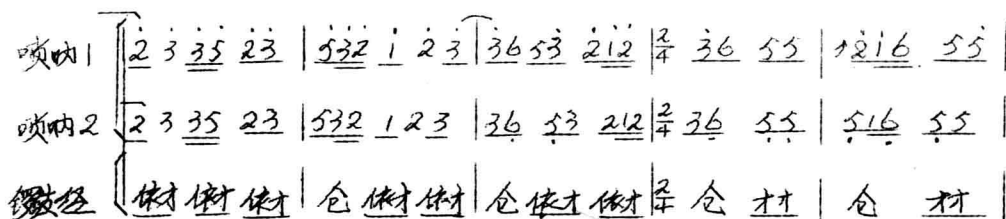 唢呐1 2 3 35 23 | 532 1 2 3 | 36 53 212 | 2/4 36 55 | 216 55 |
唢呐2 2 3 35 23 | 532 1 2 3 | 36 53 212 | 2/4 36 55 | 516 55 |
锣鼓经 依才 依才 依才 | 仓 依才 依才 | 仓 依才 依才 | 2/4 仓 才才 | 仓 才才 |